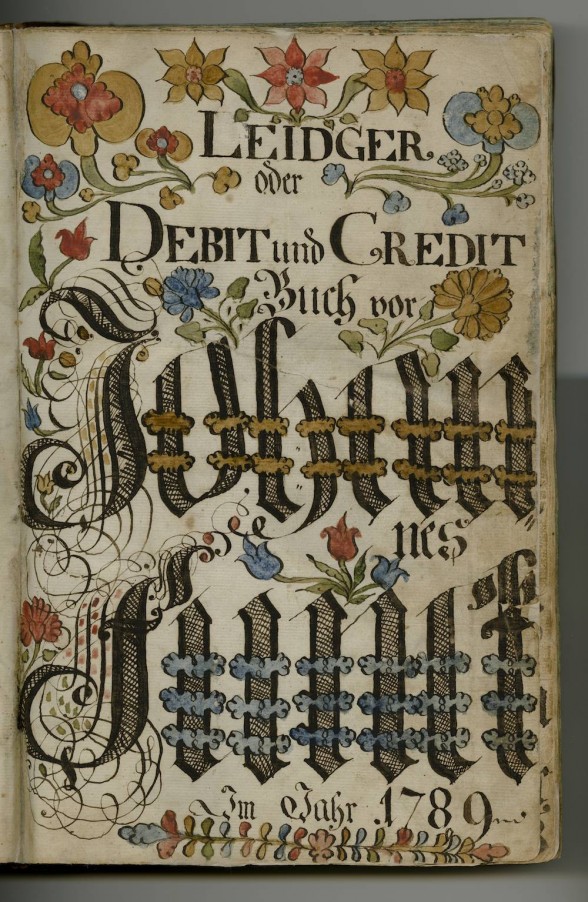 LEIDGER
oder
DEBIT und CREDIT
Buch vor
Johan
nes
Im Jahr 1789